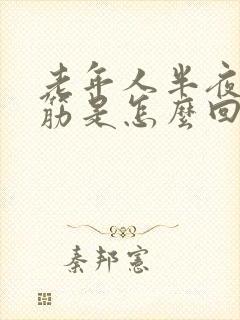 老年人半夜
筋是怎麼回
秦邦憲